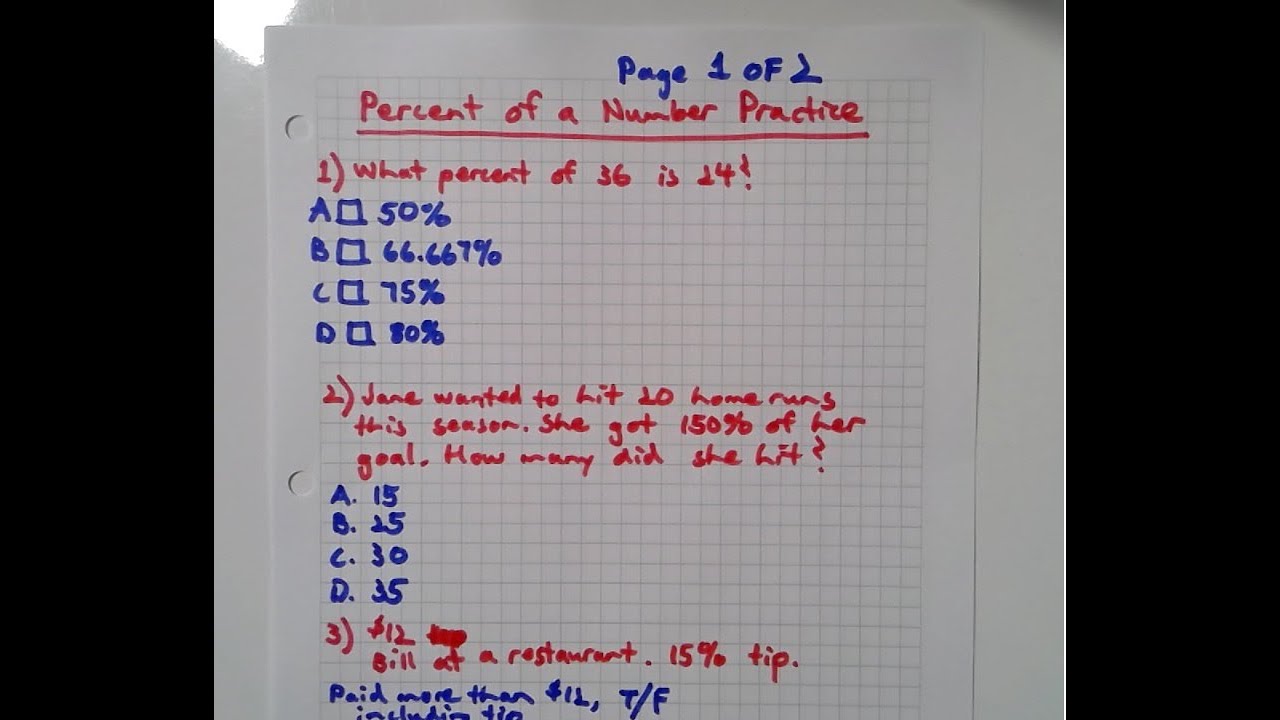 Page 1 of 2
Percent of a Number Practice
1) What percent of 36 is 24?
A □ 50%
B □ 66.667%
C □ 75%
D □ 80%
2) Jane wanted to hit 20 home runs
this season. She got 150% of her
goal. How many did she hit?
A. 15
B. 25
C. 30
D. 35
3) $12
Bill at a restaurant. 15% tip.
Paid more than $12, T/F
including tip